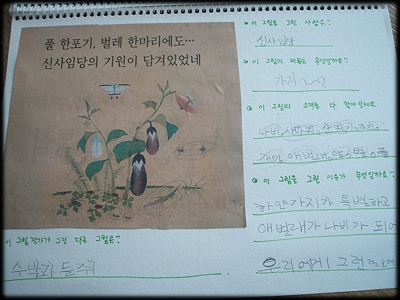 풀 한포기, 벌레 한마리에도...
신사임당의 기원이 담겨있었네
이 그림을 그린 사람은?
신사임당
이 그림의 제목은 무엇일까요?
가지
이 그림의 소재를 다 찾아보세요
나비,
개미,
이 그림을 그린 이유가 무엇일까요?
하얀가지가 특별하고
애벌레가 나비가 되어
우리에게 그런
이 그림작가가 그린 다른 그림은?
수박과 들쥐